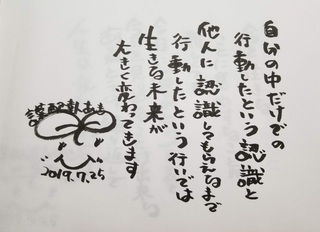 自分の中だけでの
行動したという認識と
他人に認識してもらえるまで
行動したという行いでは
生きる未来が
大きく変わってきます
2019.7.25